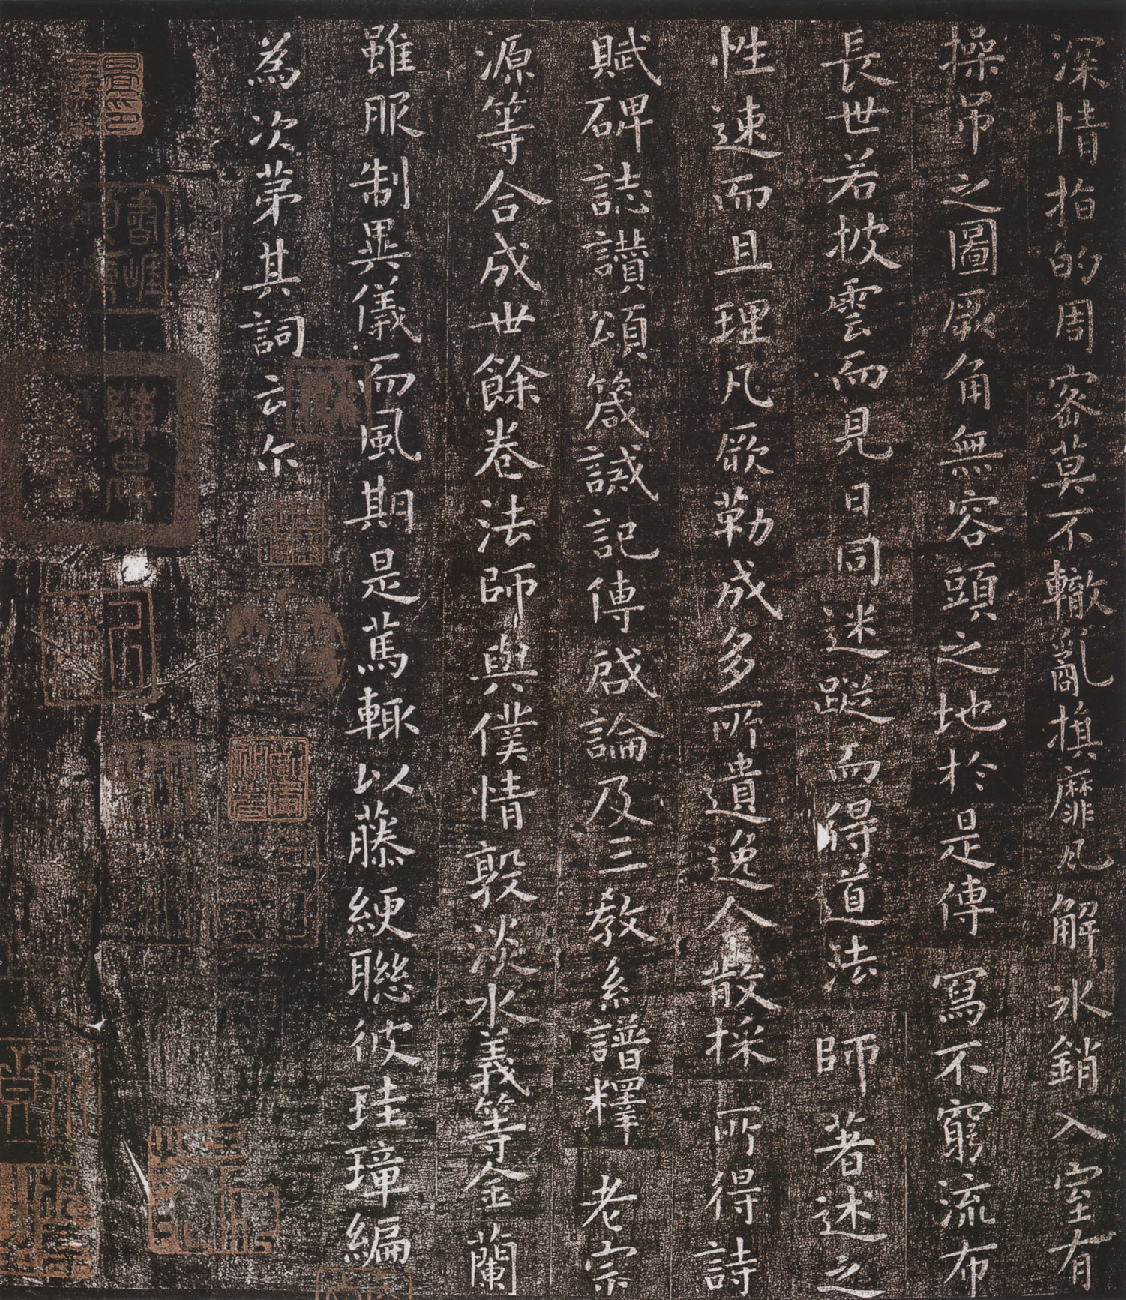 深情指的周密莫不轍亂旗靡瓦解冰銷入室有
操吊之圖厥角無容頭之地於是傳寫不窮流布
長世若披雲而見日同迷蹤而得道法師著述之
性速而且理凡厥勒成多所遺逸今散採所得詩
賦碑誌讚頌箴誡記傳啟論及三教系譜釋老宗
源等合成卅餘卷法師與僕情敦淡水義等金蘭
雖服制異儀而風期是篤輒以藤綆聯彼珪璋編
為次第其詞云尒